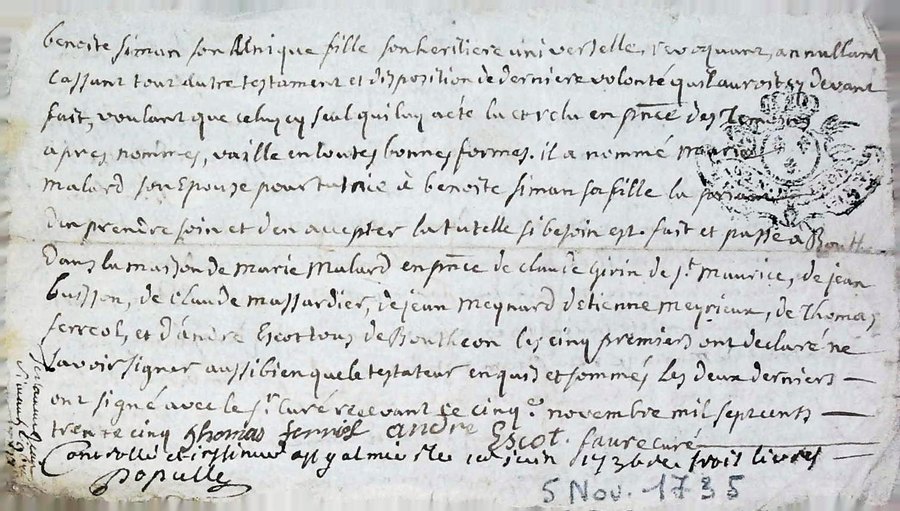 benoite siman son Unique fille son heritiere universelle, revoquant, annullant
cassant tout autre testament et disposition de derniere volonté quil auroit cy devant
fait, voulant que celuy cy seul qui luy a eté lu et relu en pnce des temoins
apres nommes, vaille en toutes bonnes formes. il a nommé marie
malard son Epouze pour tutrice à benoite siman sa fille la priant
den prendre soin et den accepter la tutelle si besoin est. fait et passé a Bouth
Dans la maison de marie malard en pnce de claude Girin de st maurice, de jean
buisson, de claude massardier, de jean meynard detienne meyrieux, de thomas
ferreol, et d'andré Escot tous de Boutheon les cinq premiers ont declaré ne
savoir signer aussi bien que le testateur enquis et sommés les deux derniers
ont signé avec le sr Curé recevant ce cinqe novembre mil sept cents
trente cinq thomas ferreol andre Escot. faure curé
Controllé et insinué a st galmier le juin 1736 reçu trois livres
Populle
5 Nov. 1735